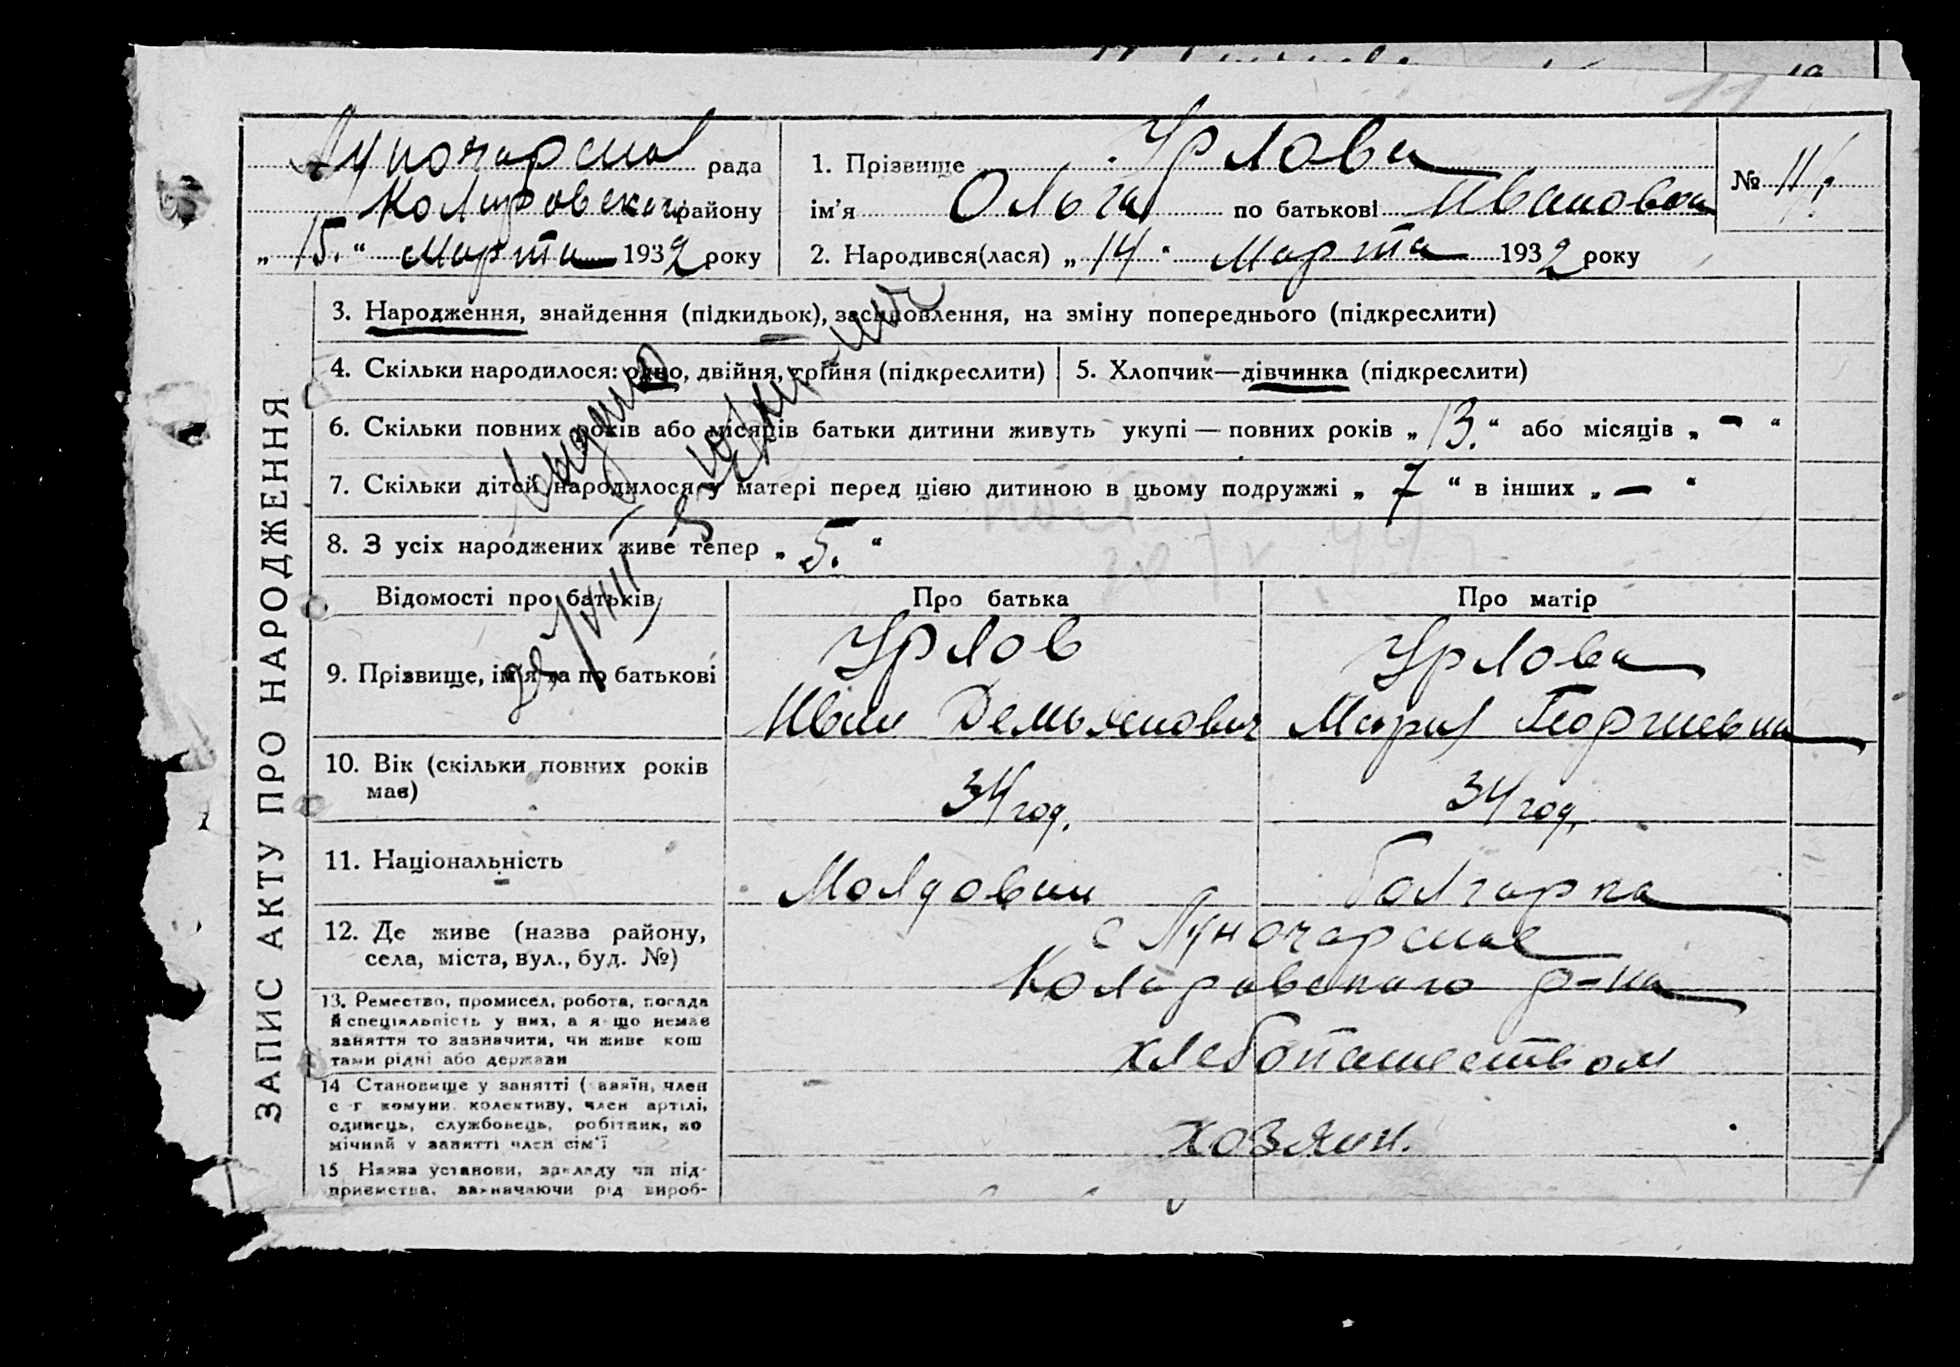 Луночарская рада
Коларовского району
„15.“ Марта 1932 року
1. Прізвище Урлова
ім’я Ольга по батькові Ивановна
№ 11
2. Народився(лася) „14“ Марта 1932 року
ЗАПИС АКТУ ПРО НАРОДЖЕННЯ
3. Народження, знайдення (підкидьок), засиновлення, на зміну попереднього (підкреслити)
4. Скільки народилося: одно, двійня, трійня (підкреслити)
5. Хлопчик—дівчинка (підкреслити)
6. Скільки повних років або місяців батьки дитини живуть укупі — повних років „13.“ або місяців „-“
7. Скільки дітей народилося у матері перед цією дитиною в цьому подружжі „7“ в інших „—“
8. З усіх народжених живе тепер „5.“
Відомості про батьків
Про батька
Про матір
9. Прізвище, ім’я та по батькові
Урлов
Иван Демьянович
Урлова
Мария Георгиевна
10. Вік (скільки повних років
має)
34 год.
34 год.
11. Національність
Молдован
болгарка
12. Де живе (назва району,
села, міста, вул., буд. №)
с Луночарское
Коларовского р-на
13. Ремество, промисел, робота, посада
й спеціяльність у них, а якщо немає
заняття то зазначити, чи живе кош
тами рідні або держави
хлебопашеством
14 Становище у занятті (хазяїн, член
с г. комуни. колективу, член артілі,
одинець, службовець, робітник, по
мічний у занятті член сім’ї
хозяин.
15 Назва установи, закладу чи під-
приємства, зазначаючи рід вироб-